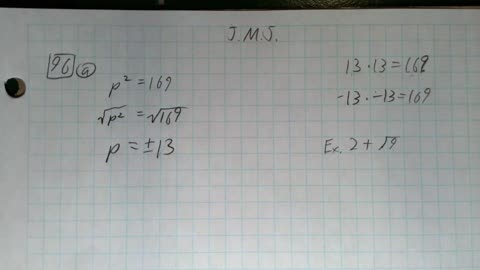 J.M.J.
96 a
p² = 169
√p² = √169
p = ±13
13 · 13 = 169
-13 · -13 = 169
Ex. 2 + √9